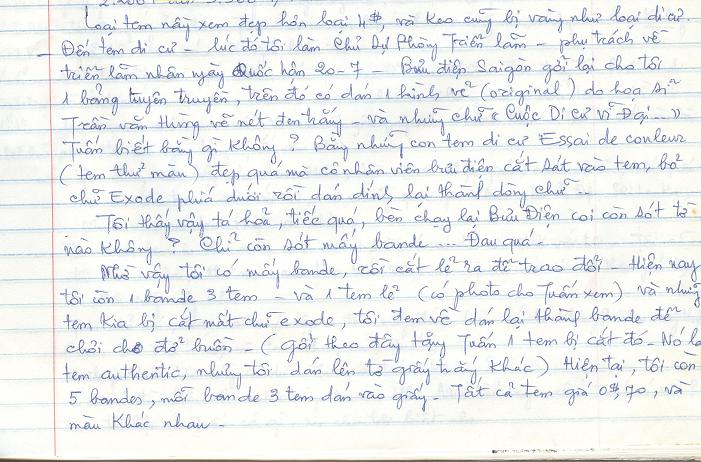 Loại tem này xem đẹp hơn loại 4$, và keo cũng bị vàng như loại di cư.
- Đến tem di cư - lúc đó tôi làm Chủ Sự Phòng Triển lãm - phụ trách về
triển lãm nhân ngày Quốc hận 20-7 - Bưu điện Saigon gởi lại cho tôi
1 bảng tuyên truyền, trên đó có dán 1 hình vẽ (original) do họa sĩ
Trần văn Thừng vẽ nét đen trắng - và những chữ "Cuộc Di cư vĩ Đại..."
Tuấn biết bằng gì không? Bằng những con tem di cư Essai de couleur
(tem thử màu) đẹp quá mà cô nhân viên bưu điện cắt sát vào tem, bỏ
chữ Exode phiá dưới rồi dán dính lại thành dòng chữ...
Tôi thấy vậy tá hỏa, tiếc quá, bèn chạy lại Bưu Điện coi còn sót tờ
nào không? Chỉ còn sót mấy bande... Đau quá.
Nhờ vậy tôi có mấy bande, rồi cắt lẻ ra để trao đổi - Hiện nay
tôi còn 1 bande 3 tem - và 1 tem lẻ (có photo cho Tuấn xem) và những
tem kia bị cắt mất chữ exode, tôi đem về dán lại thành bande để
chơi cho đỡ buồn - (gởi theo đây tặng Tuấn 1 tem bị cắt đó - Nó là
tem authentic, nhưng tôi dán lên tờ giấy trắng khác) Hiện tại, tôi còn
5 bandes, mỗi bande 3 tem dán vào giấy - Tất cả tem giá 0$,70, và
màu khác nhau -